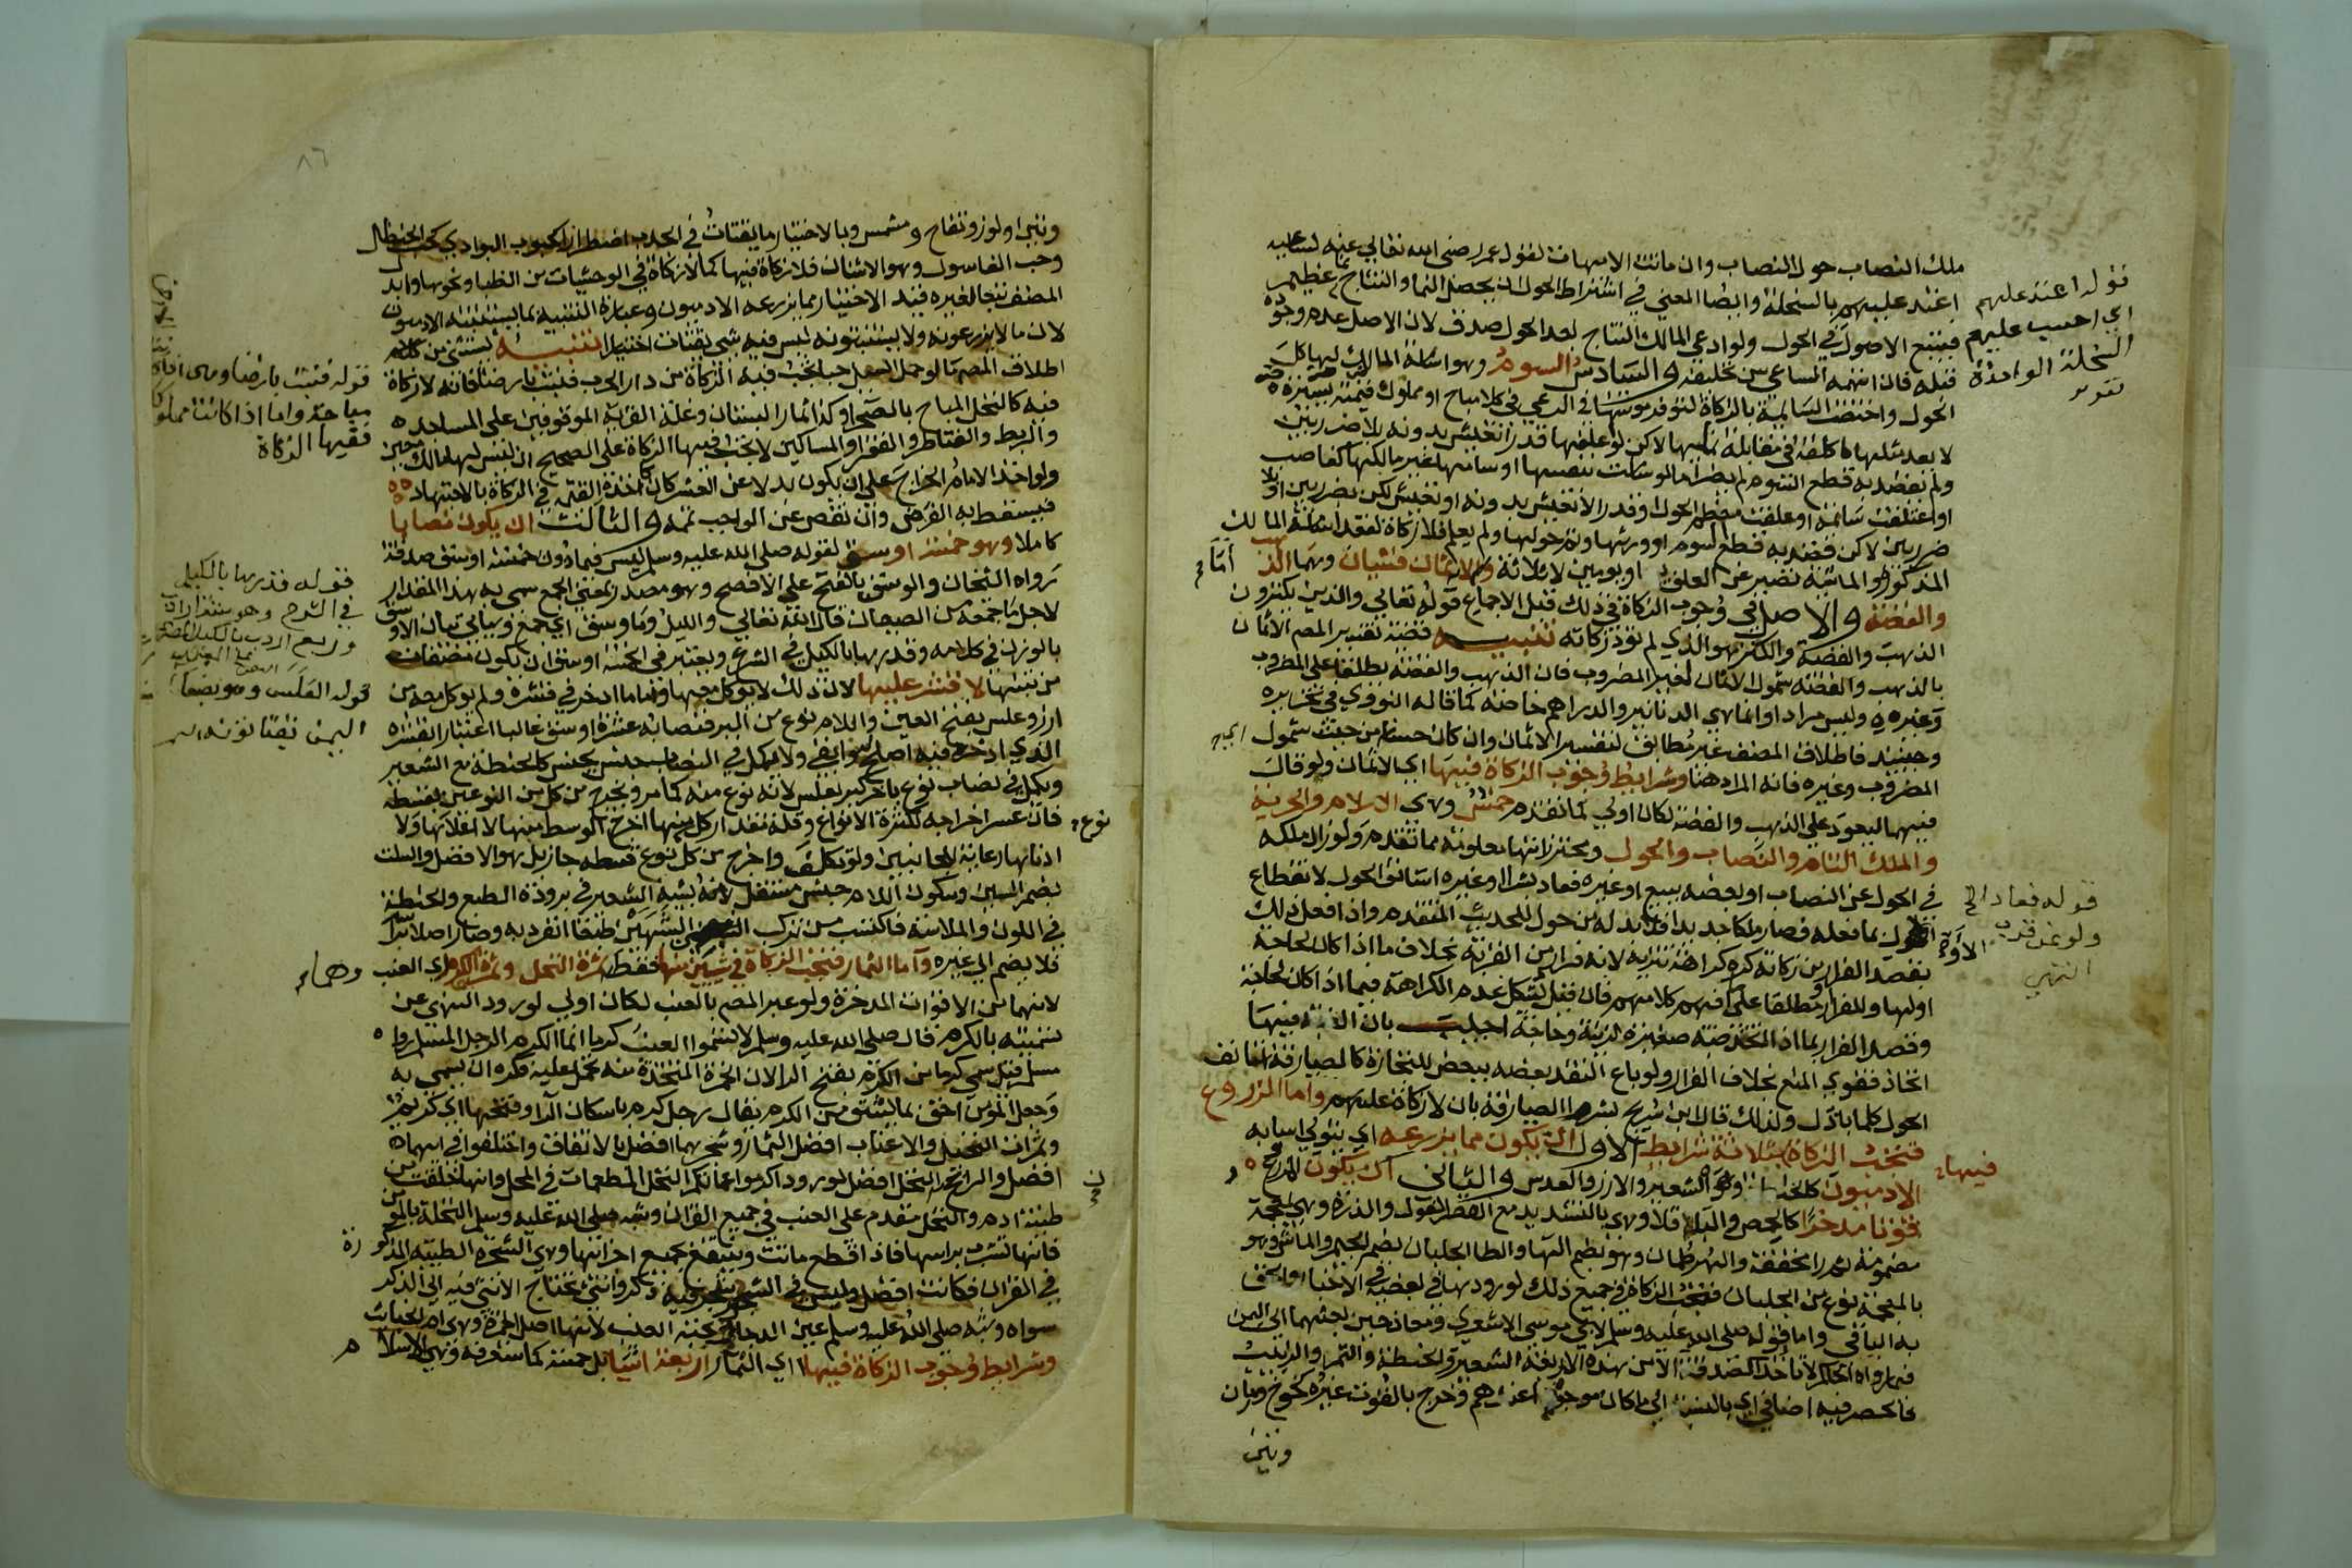 ملك النصاب حول النصاب وان ماتت الامهات لقول عمر رضي الله تعالى عنه لساعيه
اعتد عليهم بالسخلة وايضا المعنى في اشتراط الحول ان يحصل النما والنتاج نما عظيم
فيتبع الاصول في الحول ولو ادعى المالك النتاج بعد الحول صدق لان الاصل عدم وجوده
قبله فان اتهمه الساعي سن تحليفه والسادس السوم وهو اسامة المالك لها كل
الحول واختصت السايمة بالزكاة لتوفر مونتها في الرعي في كلا مباح او مملوك قيمته يسيرة
لا يعد مثلها كلفة في مقابلة نمايها لاكن لو علفها قدرا تعيش بدونه بلا ضرر بين
ولم يقصد به قطع السوم لم يضر اما لو سامت بنفسها او سامها غير مالكها كغاصب
او اعتلفت سايمة او علفت معظم الحول او قدرا لا تعيش بدونه او تعيش لكن بضرر بين او بلا
ضرر بين لاكن قصد به قطع السوم او ورثها وتم حولها ولم يعلم فلا زكاة لفقد اسامة المالك
المذكور والماشية تصبر عن العلف يوما او يومين لا ثلاثة واما الاثمان فشيان وهما الذهب
والفضة والاصل في وجوب الزكاة في ذلك قبل الاجماع قوله تعالى والذين يكنزون
الذهب والفضة والكنز هو الذي لم تؤد زكاته تنبيه قضية تفسير المص الاثمان
بالذهب والفضة شمول الاثمان لغير المضروب فان الذهب والفضة يطلقا على المضروب
وغيره وليس مرادا وانما هي الدنانير والدراهم خاصة كما قاله النووي في تحريره
وحينئذ فاطلاق المصنف غير مطابق لتفسير الاثمان وان كان حسنا من حيث شمول
المضروب وغيره فانه المراد هنا وشرايط وجوب الزكاة فيها اي الاثمان ولو قال
فيهما ليعود على الذهب والفضة لكان اولى كما تقدم خمس وهي الاسلام والحرية
والملك التام والنصاب والحول ومحترزاتها معلومة مما تقدم ولو زال ملكه
في الحول عن النصاب او بعضه ببيع او غيره فعاد بشرا او غيره استانف الحول لانقطاع
الاول بما فعله فصار ملكا جديدا فلا بد له من حول للحديث المتقدم واذا فعل ذلك
بقصد الفرار من زكاته كره كراهة تنزيه لانه فرار من القربة بخلاف ما اذا كان لحاجة
او لها وللفرار مطلقا على ما افهم كلامهم فان قيل يشكل عدم الكراهة فيما اذا كان لحاجة
وقصد الفرار بما اذا اتخذ ضبة صغيرة لزينة وحاجة اجيب بان الضبة فيها
اتخاذ فقوي المنع بخلاف الفرار ولو باع النقد بعضه ببعض للتجارة كالصيارفة استانف
الحول كلما بادل ولذلك قال ابن شريح بشر الصيارفة بان لا زكاة عليهم واما الزروع
فتجب الزكاة فيها بثلاثة شرايط الاول ان يكون مما يزرعه اي يتولى اسبابه
الادميون كالحنطة والشعير والارز والعدس والثاني ان يكون الزرع
قوتا مدخرا كالحمص والباقلا وهي بالتشديد مع القصر الفول والذرة وهي بمعجمة
مضمومة ثم را مخففة والهرطمان وهو بضم الها والطا الجلبان بضم الجيم والماش وهو
بالمعجمة نوع من الجلبان فتجب الزكاة في جميع ذلك لورودها في بعضه في الاخبار والحق
به الباقي واما قوله صلى الله عليه وسلم لابي موسى الاشعري ومعاذ حين بعثهما الى اليمن
فيما رواه الحاكم لا تاخذا الصدقة الا من هذه الاربعة الشعير والحنطة والتمر والزبيب
فالحصر فيه اضافي اي بالنسبة الى ما كان موجودا عندهم وخرج بالقوت غيره كخوخ ورمان
وتين
قوله اعتد عليهم
اي احسب عليهم
السخلة الواحدة
قوله فعاد الخ
ولو عن قرب
انتهى
وتين ولوز وتفاح ومشمش وبالاختيار ما يقتات في الجدب اضطرارا كحبوب البوادي كحب الحنظل
وحب الغاسول وهو الاشنان فلا زكاة فيها كما لا زكاة في الوحشيات من الظبا ونحوها وابدل
المصنف تبعا لغيره قيد الاختيار بما يزرعه الادميون وعبارة التنبيه بما يستنبته الادميون
لان ما لا يزرعونه ولا يستنبتونه ليس فيه شي يقتات اختيارا تنبيه يستثنى من كلام
اطلاق المص ما لو حمل السيل حبا تجب فيه الزكاة من دار الحرب فنبت بارضنا فانه لا زكاة
فيه كالنخل المباح بالصحرا وكذا ثمار البستان وغلة القرية الموقوفين على المساجد
والربط والقناطر والفقرا والمساكين لا تجب فيها الزكاة على الصحيح اذ ليس لها مالك معين
ولو اخذ الامام الخراج على ان يكون بدلا عن العشر كان كاخذ القيمة في الزكاة بالاجتهاد
فيسقط به الفرض وان نقص عن الواجب تممه والثالث ان يكون نصابا
كاملا وهو خمسة اوسق لقوله صلى الله عليه وسلم ليس فيما دون خمسة اوسق صدقة
رواه الشيخان والوسق بالفتح على الافصح وهو مصدر بمعنى الجمع سمي به هذا المقدار
لاجل ما جمعه من الصيعان قال الله تعالى والليل وما وسق اي جمع وسياتي بيان الاوسق
بالوزن في كلامه وقدرها بالكيل في الشرع ويعتبر في الخمسة اوسق ان يكون مصفاة
من تبنها لا قشر عليها لان ذلك لا يوكل معها واما ما ادخر في قشره ولم يوكل معه من
ارز وعلس بفتح العين واللام نوع من البر فنصابه عشرة اوسق غالبا اعتبارا لقشره
الذي ادخر فيه اصلح له وابقى ولا يكمل في النصاب جنس بجنس كالحنطة مع الشعير
ويكمل في نصاب نوع باخر كبر بعلس لانه نوع منه كما مر ويخرج من كل من النوعين بقسطه
فان عسر اخراجه لكثرة الانواع وقلة مقدار كل نوع منها اخرج الوسط منها لا اعلاها ولا
ادناها رعاية للجانبين ولو تكلف واخرج من كل نوع قسطه جاز بل هو الافضل والسلت
بضم السين وسكون اللام جنس مستقل لانه يشبه الشعير في برودة الطبع والحنطة
في اللون والملاسة فاكتسب من تركب الشبهين طبعا انفرد به وصار اصلا براسه
فلا يضم الى غيره واما الثمار فتجب الزكاة في شيئين منها فقط وهما ثمرة النخل وثمرة الكرم اي العنب
لانهما من الاقوات المدخرة ولو عبر المص بالعنب لكان اولى لورود النهي عن
تسميته بالكرم قال صلى الله عليه وسلم لا تسموا العنب كرما انما الكرم الرجل المسلم رواه
مسلم قيل سمي كرما من الكرم بفتح الرا لان الخمرة المتخذة منه تحمل عليه فكره ان يسمى به
وجعل المومن احق بما يشتق من الكرم يقال رجل كرم باسكان الرا وفتحها اي كريم
وثمرات النخيل والاعناب افضل الثمار وشجرهما افضل بالاتفاق واختلفوا في ايهما
افضل والراجح ان النخل افضل لورود اكرموا عماتكم النخل المطعمات في المحل وانها خلقت من
طينة ادم والنخل مقدم على العنب في جميع القران وشبه صلى الله عليه وسلم النخلة بالمومن
فانها تشرب براسها فاذا قطع ماتت وينتفع بجميع اجزائها وهي الشجرة الطيبة المذكورة
في القران فكانت افضل وليس في الشجر شجر فيه ذكر وانثى تحتاج الانثى فيه الى الذكر
سواه وشبه صلى الله عليه وسلم عين الدجال بحبة العنب لانها اصل الخمرة وهي ام الخبائث
وشرايط وجوب الزكاة فيها اي الثمار اربعة اشيا بل خمسة كما ستعرفه وهي الاسلام
قوله فنبت بارضنا وهي اي
مباحة واما اذا كانت مملوكة
ففيها الزكاة
قوله وقدرها بالكيل
في الشرح وهو ستة ارادب
وربع اردب بالكيل المصري
قوله العلس وهو بصنعا
اليمن